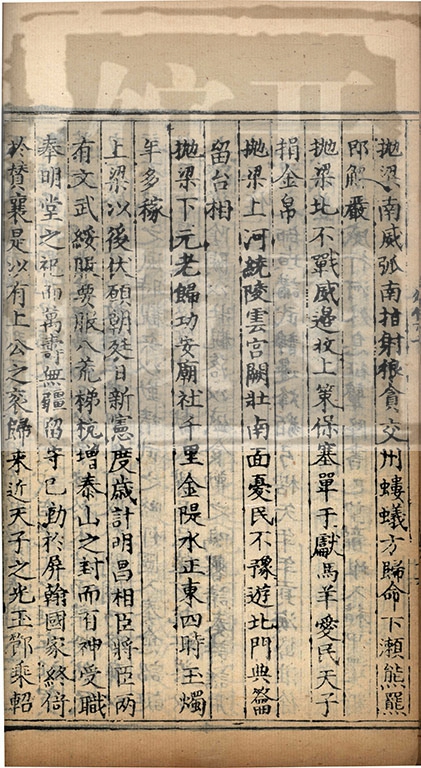 抛梁南威弧南指射狼貪交州螻蟻方歸命下瀨熊羆
即解嚴
抛梁北不戰威邊上策保塞單于獻馬羊愛民天子
捐金帛
抛梁上河繞陵雲宮闕壯南面憂民不豫遊北門典籥
留台相
抛梁下元老歸功安廟社千里金隄水正東四時玉燭
年多稼
上梁以後伏願朝廷日新憲度歲計明昌相臣將臣兩
有文武綏服要服八荒梯杭增泰山之封而有神受職
奉明堂之祝而萬壽無疆留守已勤於屏翰國家終倚
於贊襄是以有上公之衮歸來近天子之光玉節乘軺